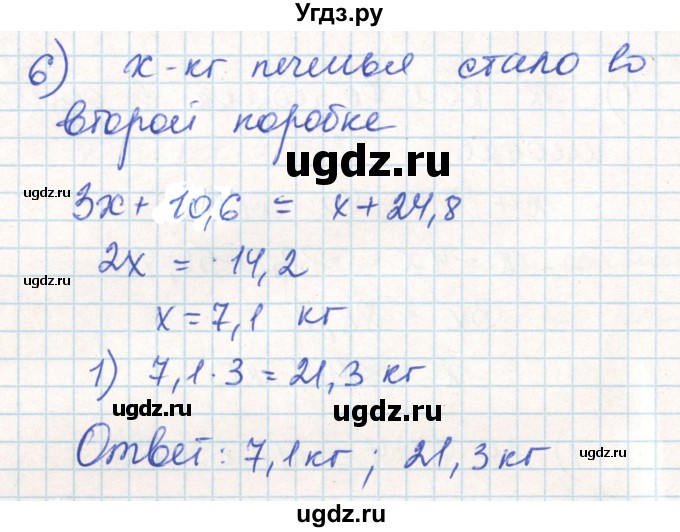 Угдз.ру
б) х-кг печенья стало во
второй коробке
ugdz.ru
ugdz.ru
3х + 10,6 = х + 24,8
2х = 14,2
ugdz.ru
х = 7,1 кг
1) 7,1 · 3 = 21,3 кг
ugdz.ru
ugdz.ru
Ответ: 7,1 кг; 21,3 кг
ugdz.ru